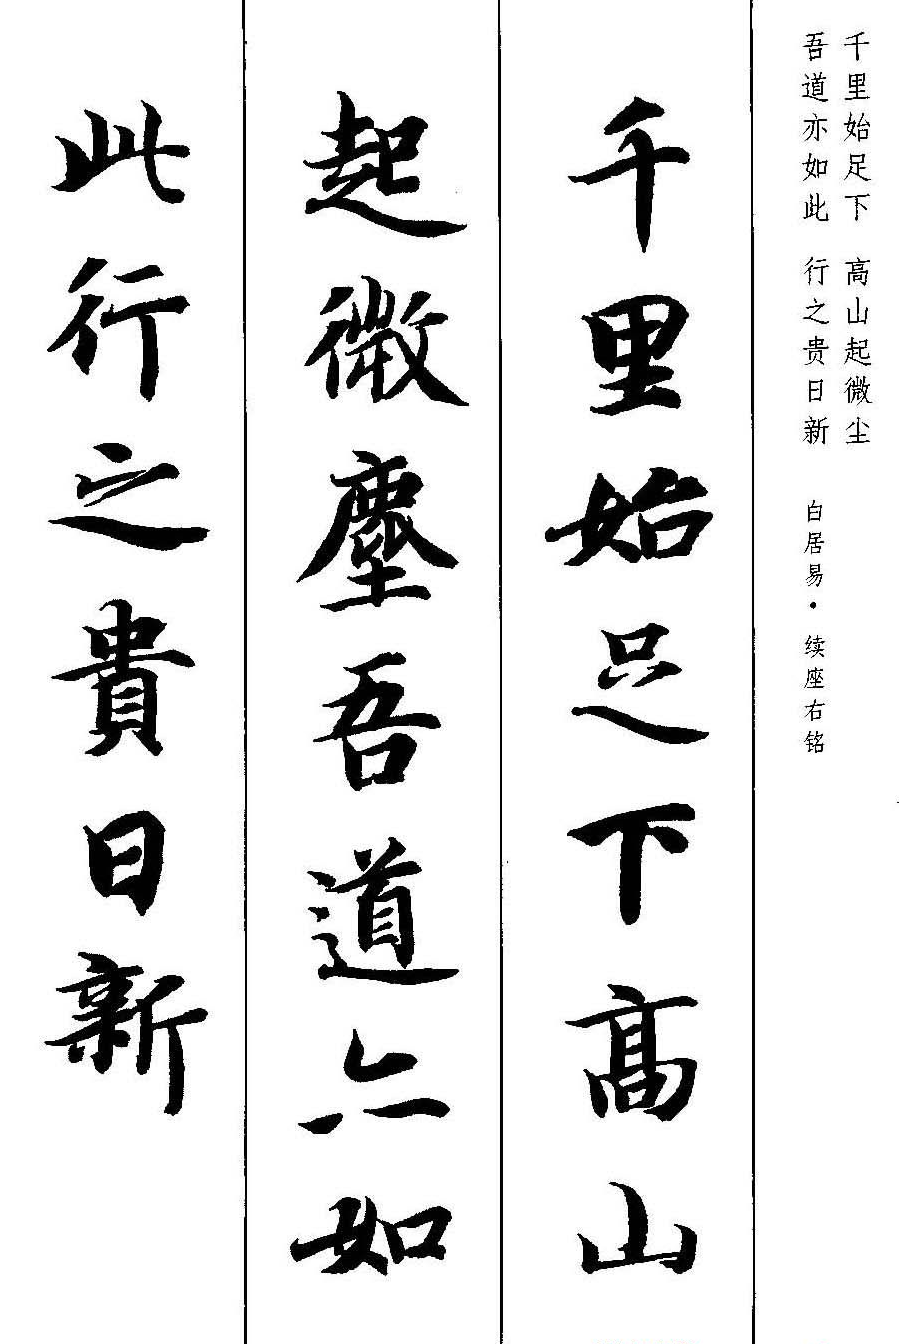 千里始足下 高山起微尘
吾道亦如此 行之贵日新
白居易・续座右铭
千里始足下高山
起微塵吾道亦如
此行之貴日新